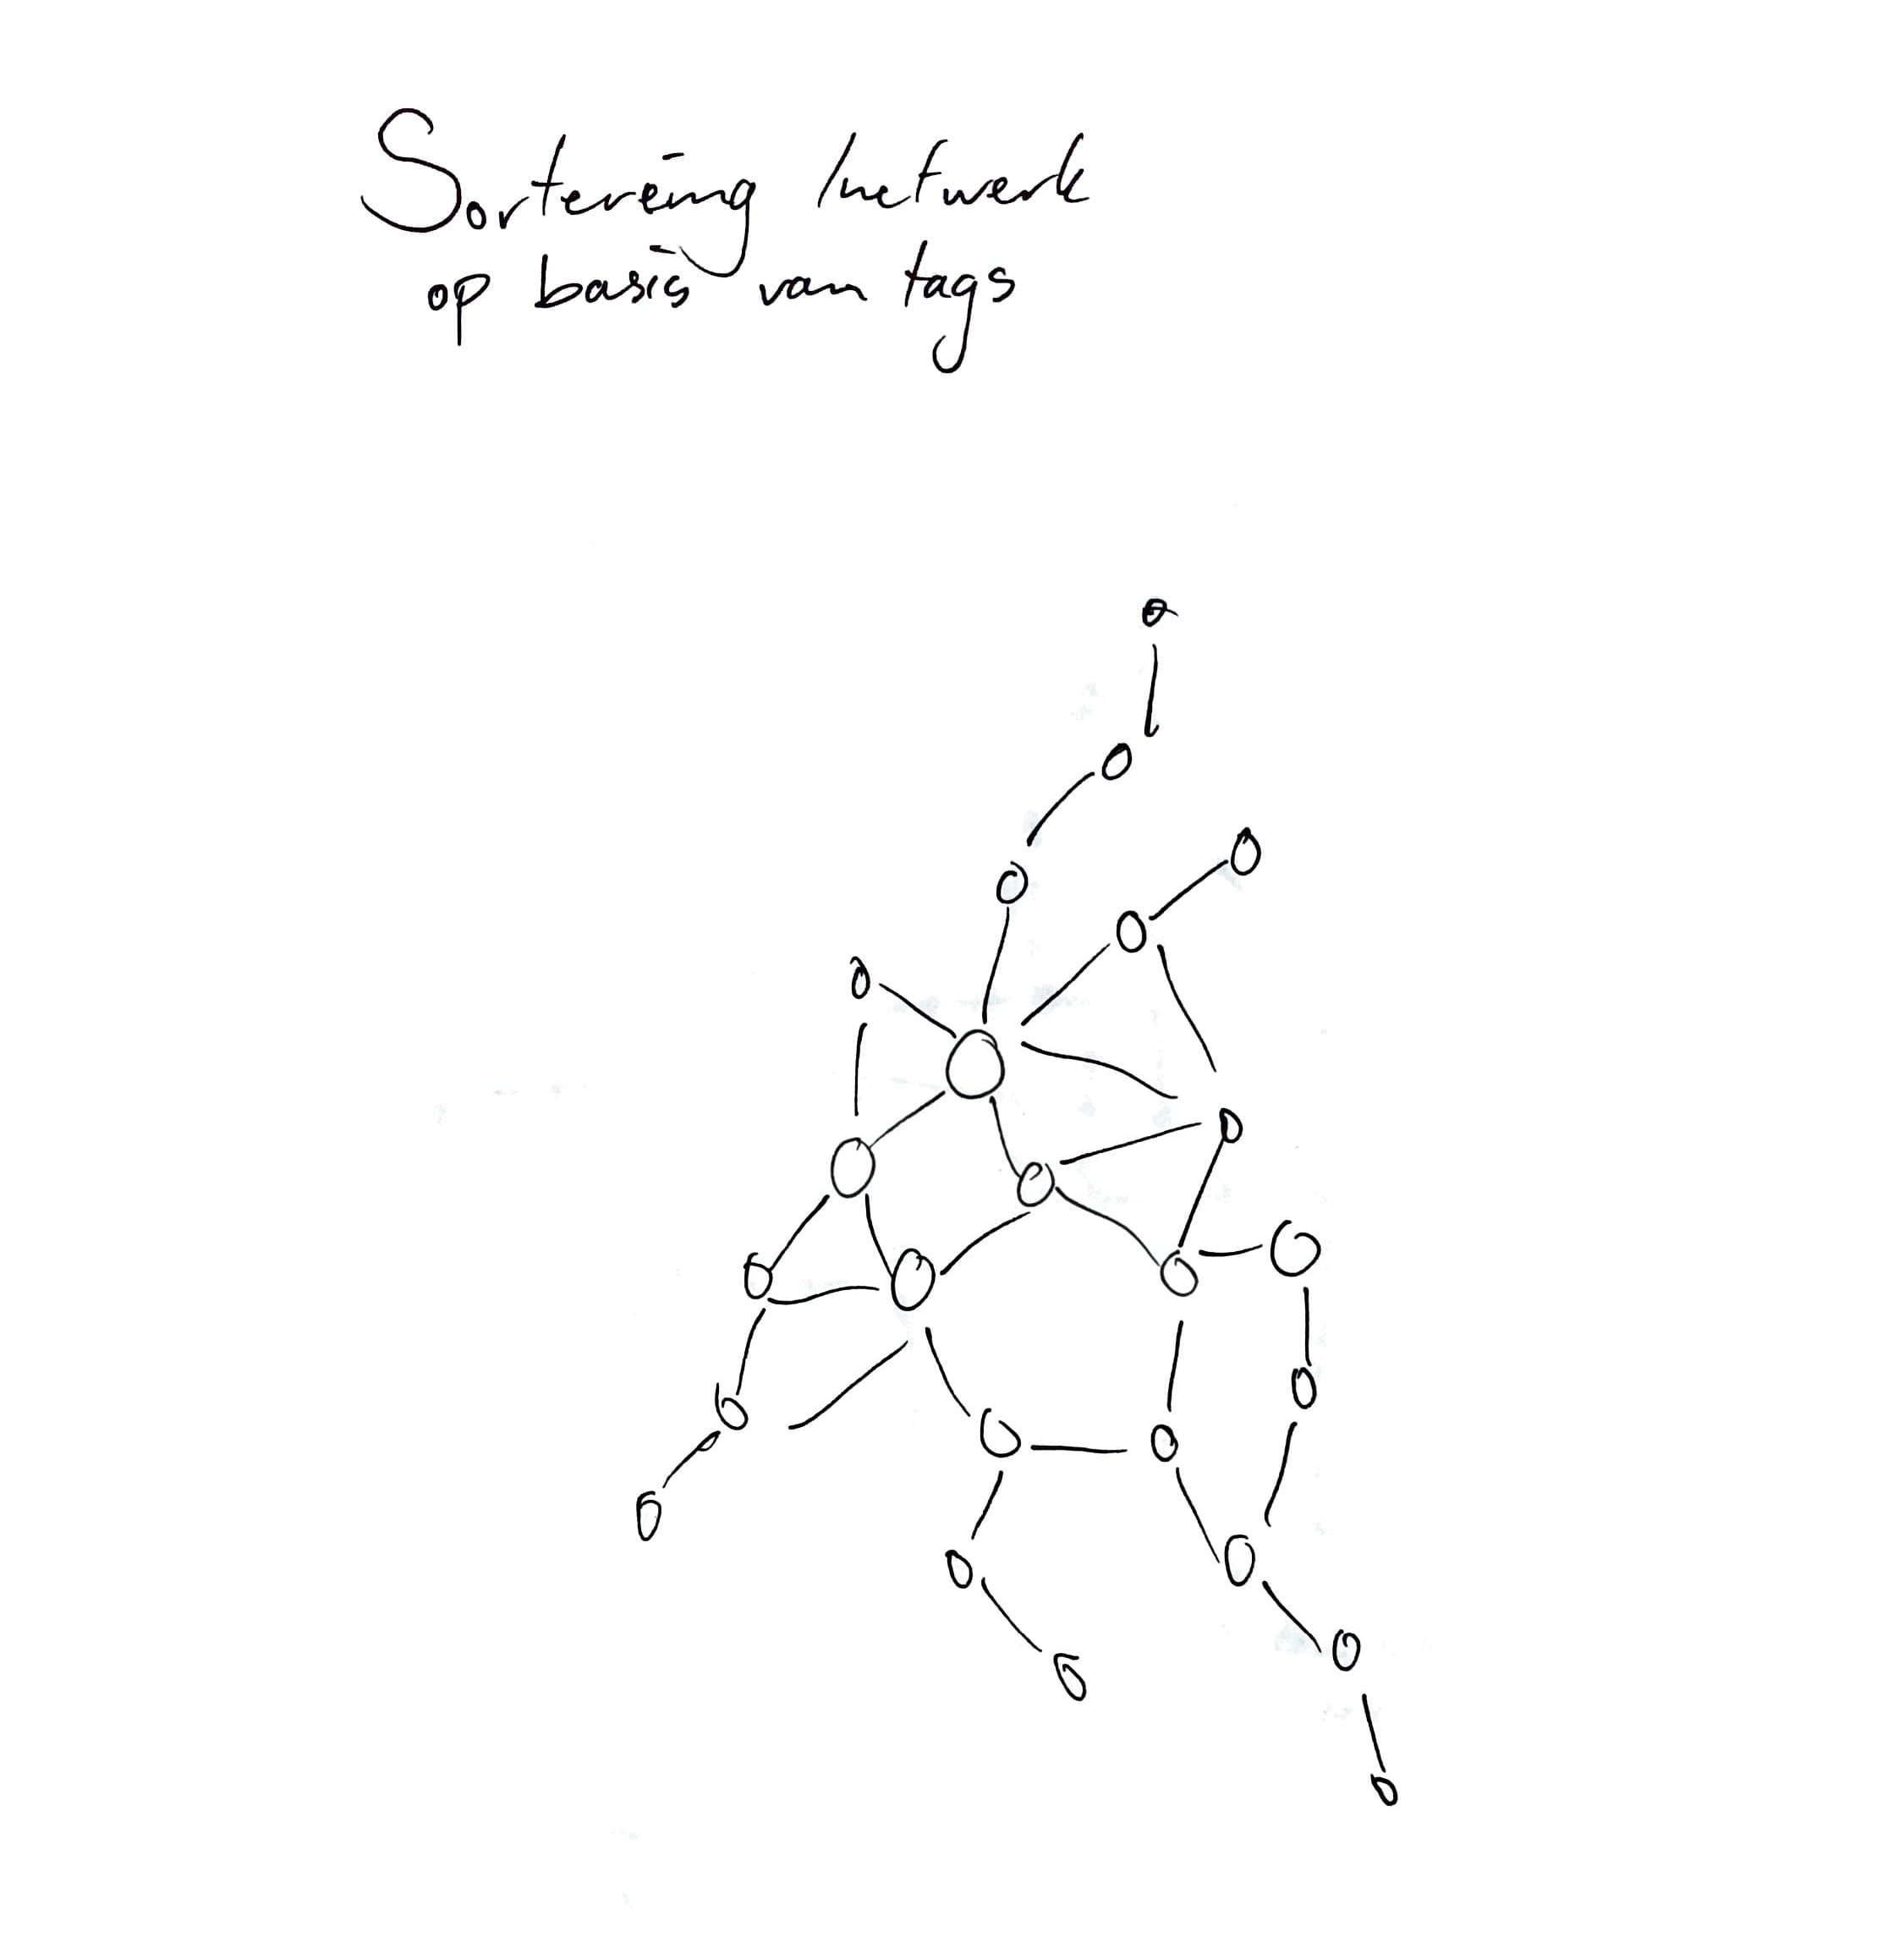 Sortering / netwerk
op basis van tags